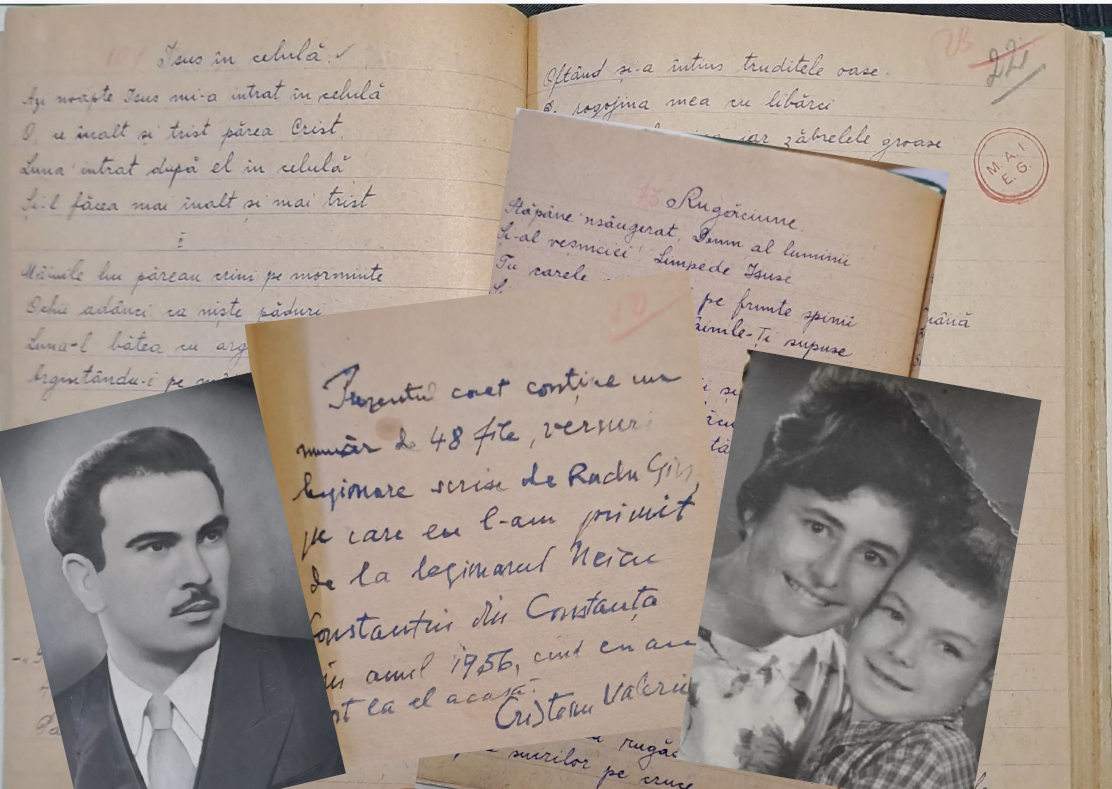 Isus în celulă.
Azi noapte Isus mi-a intrat în celulă
O, ce înalt și trist părea Crist.
Luna intrat după el în celulă
Și-l făcea mai înalt și mai trist
Mâinile lui păreau crini pe morminte
Ochii adânci ca niște păduri
Luna-l bătea cu arg
Argintându-i pe
23
22
Oftând și-a întins truditele oase
rogojina mea cu libărci
iar zăbrelele groase
M.A.I.
E.G.
Rugăciune
Stăpâne 'nsângerat, Domn al luminii
Și-al veșniciei! Limpede Isuse
Tu carele
pe frunte spinii
supuse
50
Prezentul caet conține un
număr de 48 file, versuri
legionare scrise de Radu Gir,
pe care eu l-am primit
de la legionarul Neicu
Constantin din Constanța
în anul 1956, cînd eu am
st la el acasă.
Cristescu Valeriu
rugăc
pe cruce